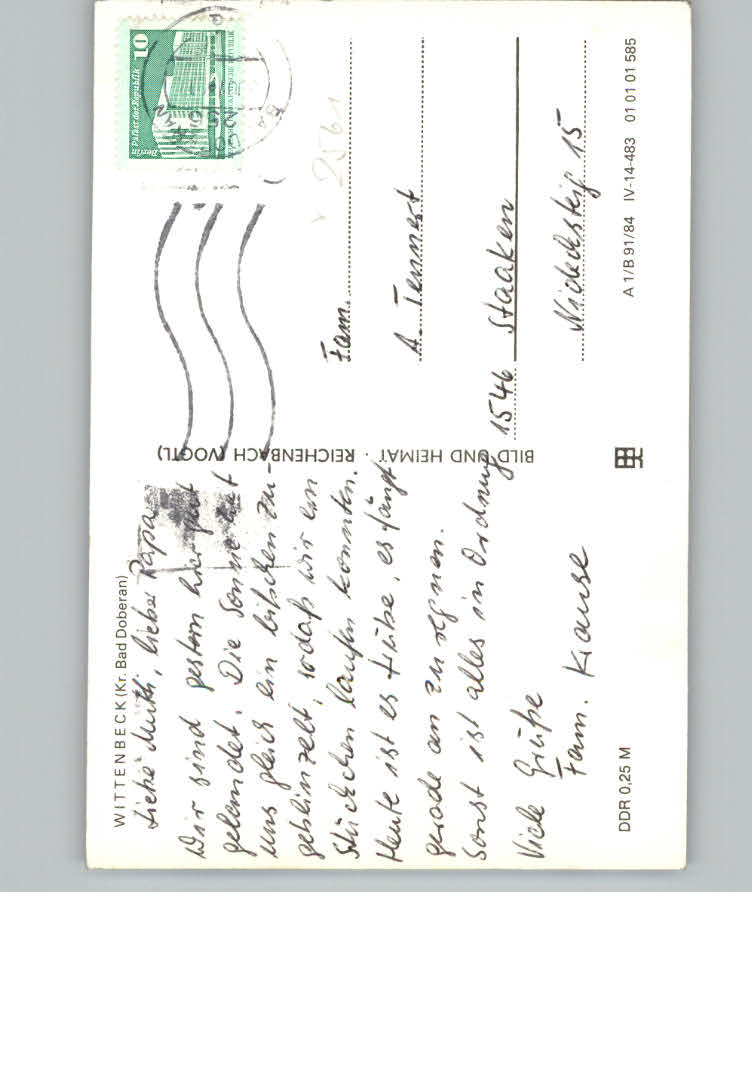 WITTENBECK (Kr. Bad Doberan)
Liebe Mutti, lieber Papa
Wir sind gestern hier gut
gelandet. Die Sonne hat
uns gleich ein bißchen zu-
geblinzelt, sodaß wir ein
Stückchen laufen konnten.
Heute ist es trübe, es fängt
gerade an zu regnen.
Sonst ist alles in Ordnung
Viele Grüße
Fam. Krause
DDR 0,25 M
BILD UND HEIMAT · REICHENBACH (VOGTL)
10
Berlin Palast der Republik
2561
Fam.
A. Tennert
1546 Staaken
15
A 1/B 91/84 IV-14-483 01 01 01 585